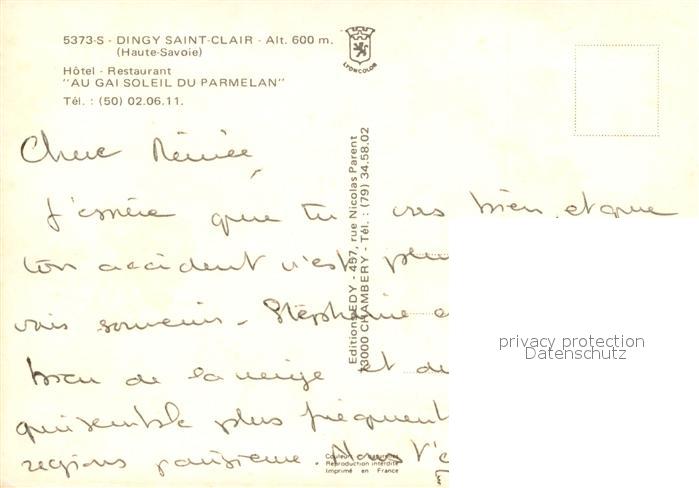 5373-S - DINGY SAINT-CLAIR - Alt. 600 m.
(Haute-Savoie)
Hôtel - Restaurant
"AU GAI SOLEIL DU PARMELAN"
Tél. : (50) 02.06.11.
LYONCOLOR
Editions EDY - 457, rue Nicolas Parent
73000 CHAMBERY - Tél. : (79) 34.58.02
Chère Renée,
J'espère que tu vas bien et que
ton accident n'est plus
vais souvenir - Stéphanie
beau de la neige et du
qui semble plus fréquent
régions parisienne. Nous t'e
Couleurs naturelles
Reproduction interdite
Imprimé en France
privacy protection
Datenschutz